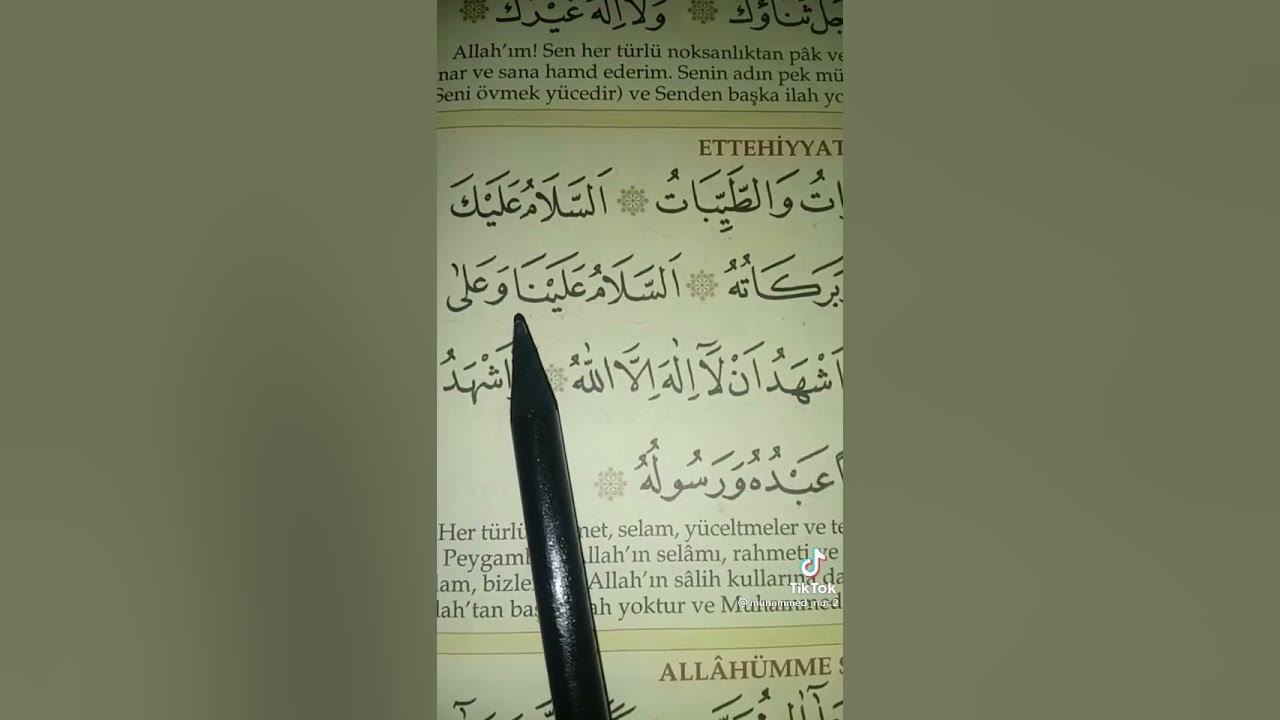 جَلَّ ثَنَاؤُكَ ۞ وَلَا اِلٰهَ غَيْرُكَ ۞
Allah'ım! Sen her türlü noksanlıktan pâk ve
nar ve sana hamd ederim. Senin adın pek mü
Seni övmek yücedir) ve Senden başka ilah yo
ETTEHİYYAT
وَالطَّيِّبَاتُ ۞ اَلسَّلَامُ عَلَيْكَ
بَرَكَاتُهُ ۞ اَلسَّلَامُ عَلَيْنَا وَعَلٰى
اَشْهَدُ اَنْ لَٓا اِلٰهَ اِلَّا اللّٰهُ ۞ اَشْهَدُ
عَبْدُهُ وَرَسُولُهُ ۞
Her türlü met, selam, yüceltmeler ve te
Peygam llah'ın selâmı, rahmeti ve
lam, bizle Allah'ın sâlih kullarına da
lah'tan ba ah yoktur ve Muhammed
TikTok
@muhammed_nur.2
ALLÂHÜMME S